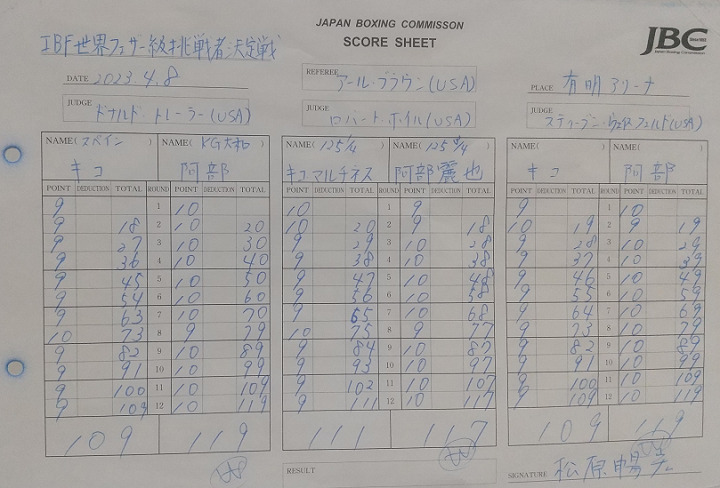 JAPAN BOXING COMMISSON
SCORE SHEET
JBC
IBF世界フェザー級挑戦者決定戦
DATE 2023.4.8
REFEREE アール・ブラウン(USA)
PLACE 有明アリーナ
JUDGE ドナルド・トレーラー(USA)
JUDGE ロバート・ホイル(USA)
JUDGE スティーブン・ウェイスフェルド(USA)
NAME(スペイン) NAME(KG大和) NAME(125 1/4) NAME(125 3/4) NAME( ) NAME( )
キコ 阿部 キコマルチネス 阿部麗也 キコ 阿部
POINT DEDUCTION TOTAL ROUND POINT DEDUCTION TOTAL POINT DEDUCTION TOTAL ROUND POINT DEDUCTION TOTAL POINT DEDUCTION TOTAL ROUND POINT DEDUCTION TOTAL
9 1 10 10 1 9 9 1 10
9 18 2 10 20 10 20 2 9 18 10 19 2 9 19
9 27 3 10 30 9 29 3 10 28 9 28 3 10 29
9 36 4 10 40 9 38 4 10 38 9 37 4 10 39
9 45 5 10 50 9 47 5 10 48 9 46 5 10 49
9 54 6 10 60 9 56 6 10 58 9 55 6 10 59
9 63 7 10 70 9 65 7 10 68 9 64 7 10 69
10 73 8 9 79 10 75 8 9 77 9 73 8 10 79
9 82 9 10 89 9 84 9 10 87 9 82 9 10 89
9 91 10 10 99 9 93 10 10 97 9 91 10 10 99
9 100 11 10 109 9 102 11 10 107 9 100 11 10 109
9 109 12 10 119 9 111 12 10 117 9 109 12 10 119
109 119 111 117 109 119
RESULT
SIGNATURE 松原暢宏